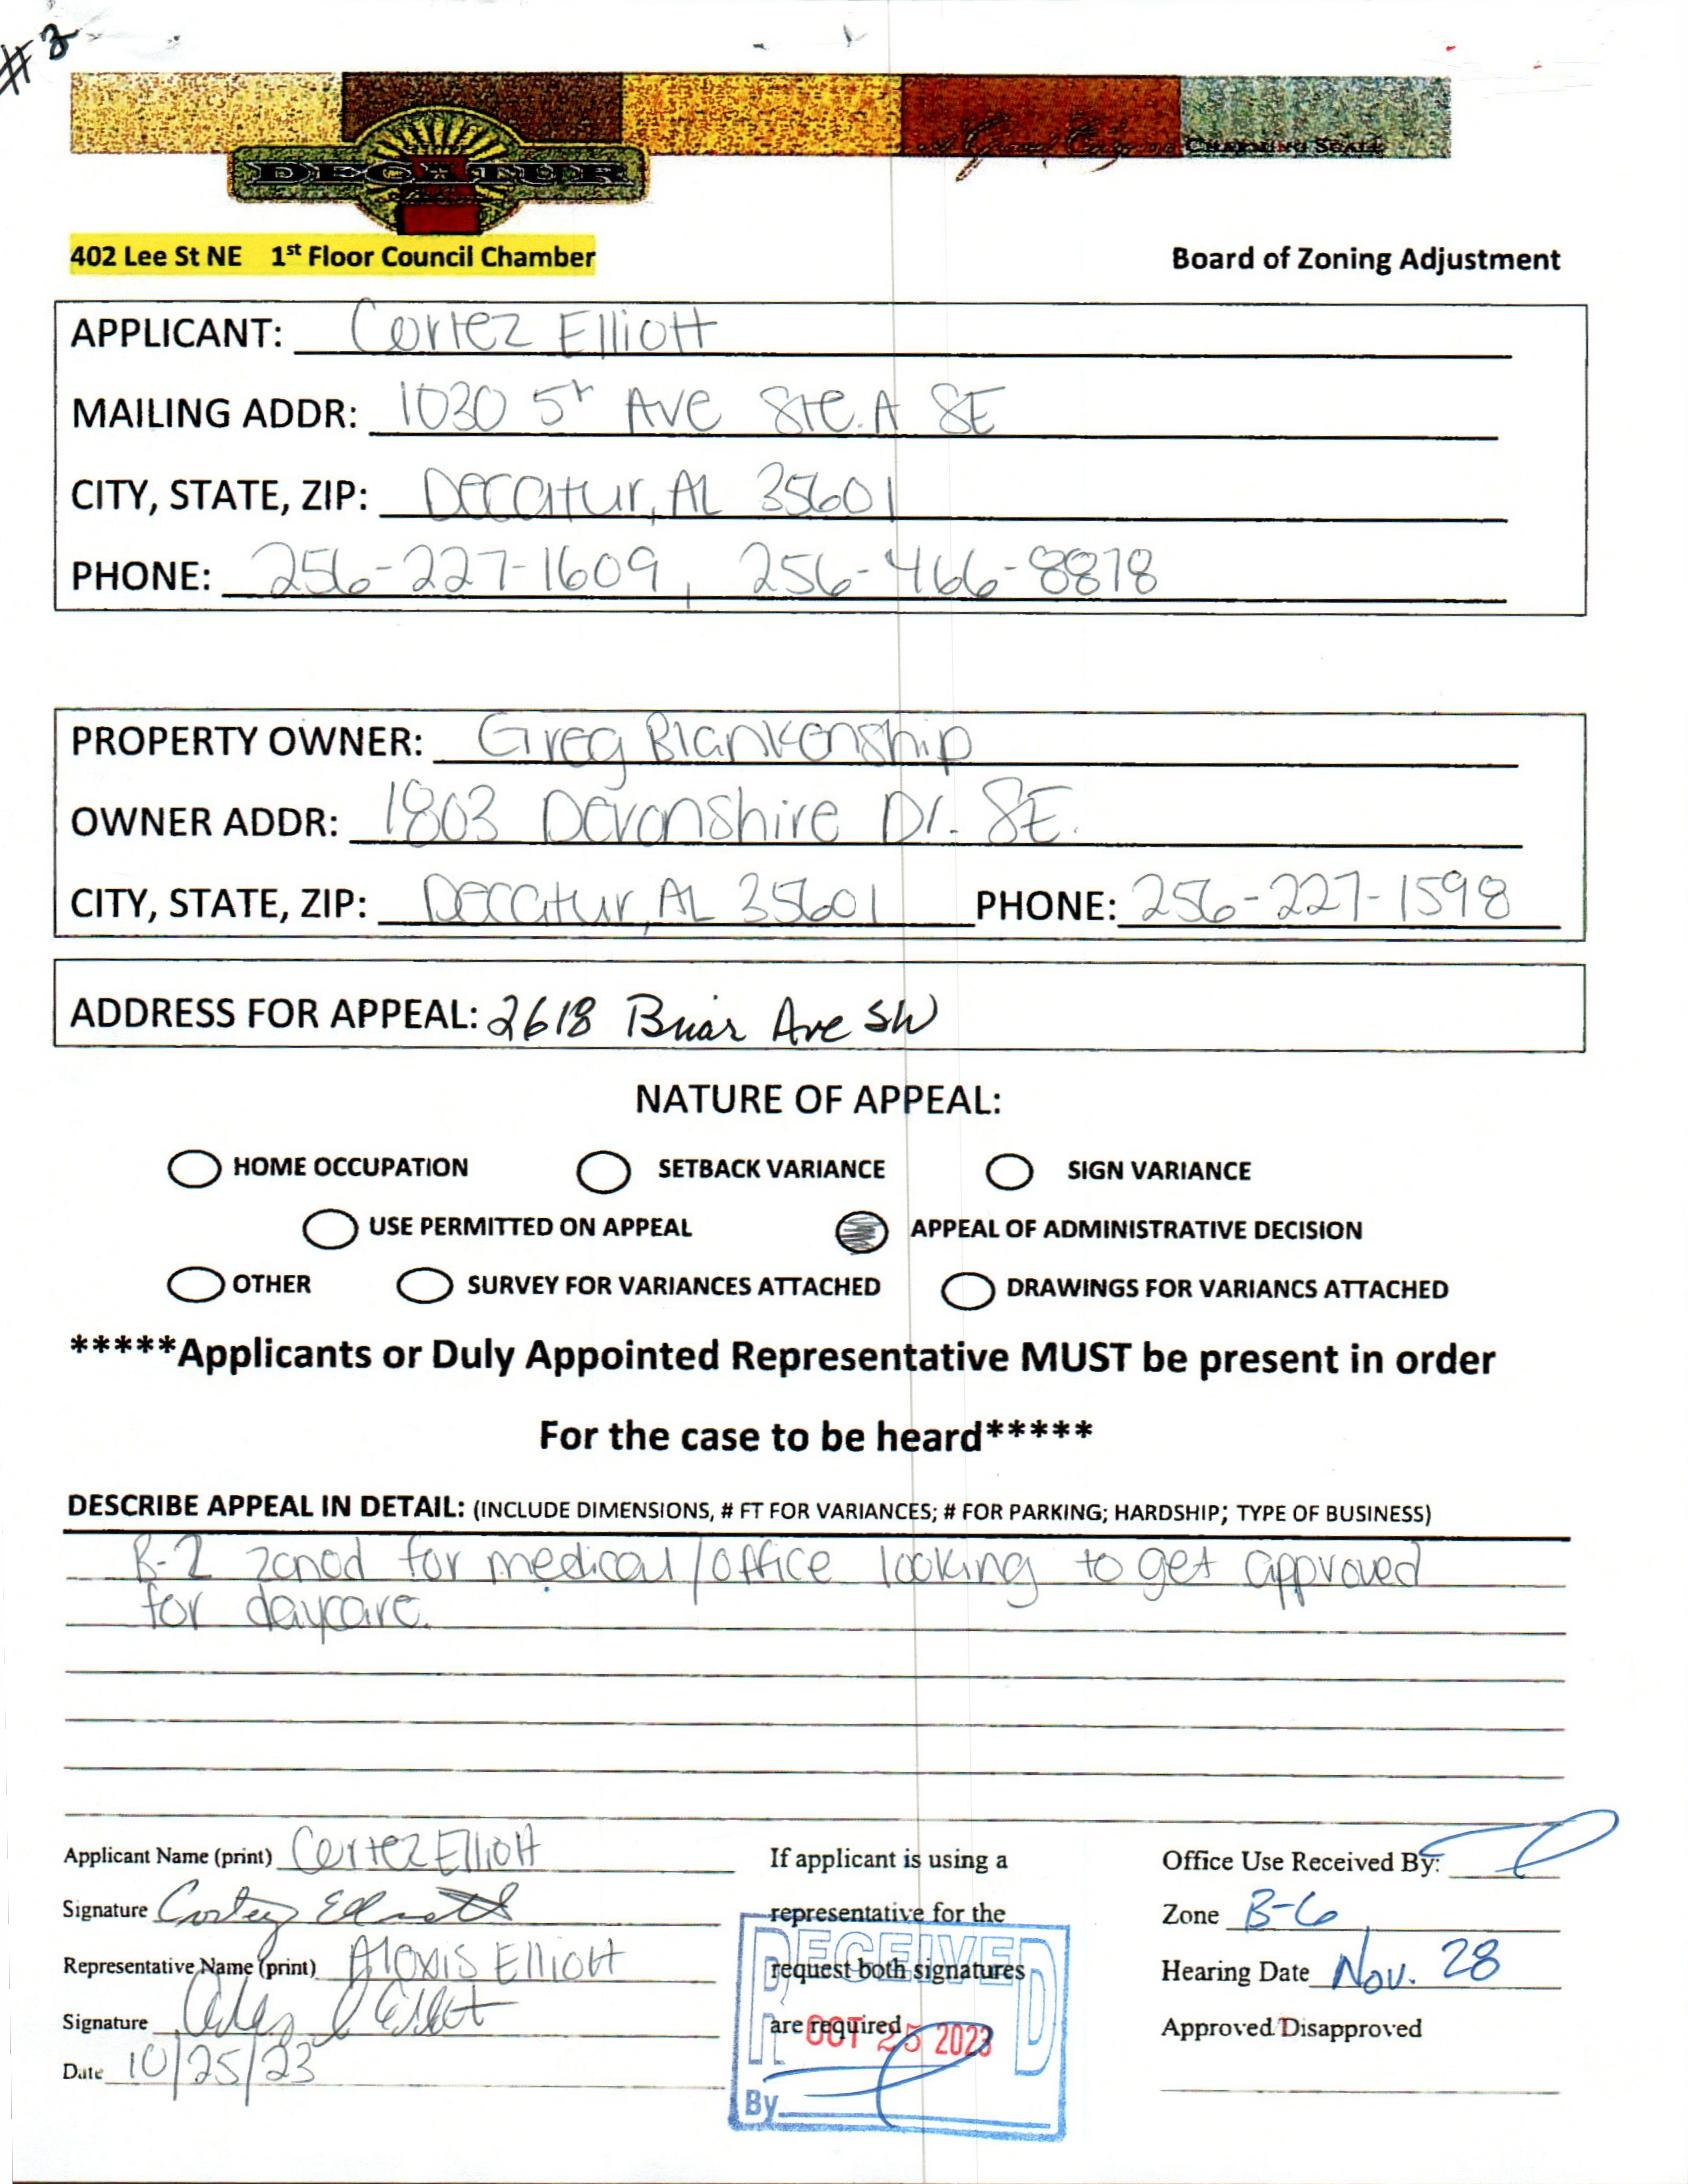 #2
DECATUR
CHARMING SCALE
402 Lee St NE 1st Floor Council Chamber
Board of Zoning Adjustment
APPLICANT: Cortez Elliott
MAILING ADDR: 1030 5th Ave Ste. A SE
CITY, STATE, ZIP: Decatur, AL 35601
PHONE: 256-227-1609, 256-466-8878
PROPERTY OWNER: Greg Blankenship
OWNER ADDR: 1803 Devonshire Dr. SE.
CITY, STATE, ZIP: Decatur, AL 35601 PHONE: 256-227-1598
ADDRESS FOR APPEAL: 2618 Briar Ave SW
NATURE OF APPEAL:
HOME OCCUPATION SETBACK VARIANCE SIGN VARIANCE
USE PERMITTED ON APPEAL APPEAL OF ADMINISTRATIVE DECISION
OTHER SURVEY FOR VARIANCES ATTACHED DRAWINGS FOR VARIANCS ATTACHED
*****Applicants or Duly Appointed Representative MUST be present in order
For the case to be heard*****
DESCRIBE APPEAL IN DETAIL: (INCLUDE DIMENSIONS, # FT FOR VARIANCES; # FOR PARKING; HARDSHIP; TYPE OF BUSINESS)
B-2 zoned for medical/office looking to get approved
for daycare.
Applicant Name (print) Cortez Elliott
Signature Cortez Elliott
Representative Name (print) Alexis Elliott
Signature
Date 10/25/23
If applicant is using a
representative for the
request both signatures
are required
RECEIVED
OCT 25 2023
By
Office Use Received By:
Zone B-6
Hearing Date Nov. 28
Approved/Disapproved